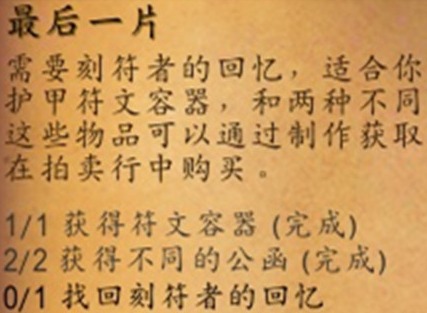 最后一片
需要刻符者的回忆，适合你
护甲符文容器，和两种不同
这些物品可以通过制作获取
在拍卖行中购买。
1/1 获得符文容器 (完成)
2/2 获得不同的公函 (完成)
0/1 找回刻符者的回忆